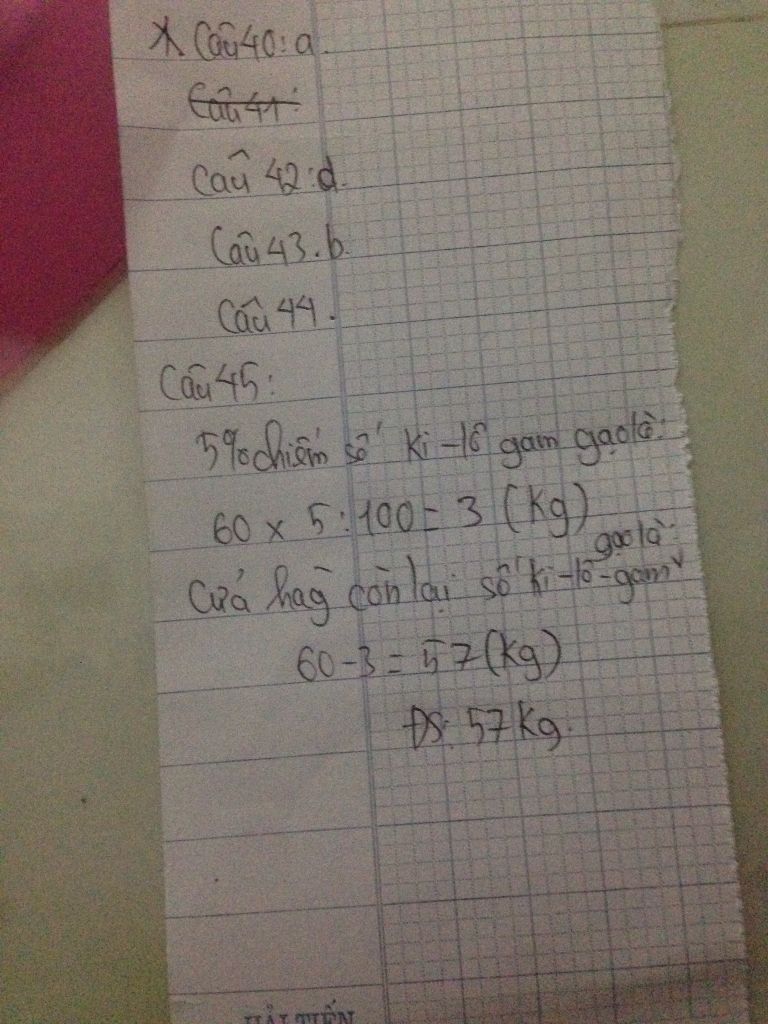 * Câu 40: a.
Câu 41:
Câu 42: d.
Câu 43. b.
Câu 44.
Câu 45:
5% chiếm số ki-lô gam gạo là:
60 x 5 : 100 = 3 (kg)
Cửa hag̀ còn lại số ki-lô-gam gạo là:
60 - 3 = 57 (kg)
ĐS: 57 kg.
HẢI TIẾN